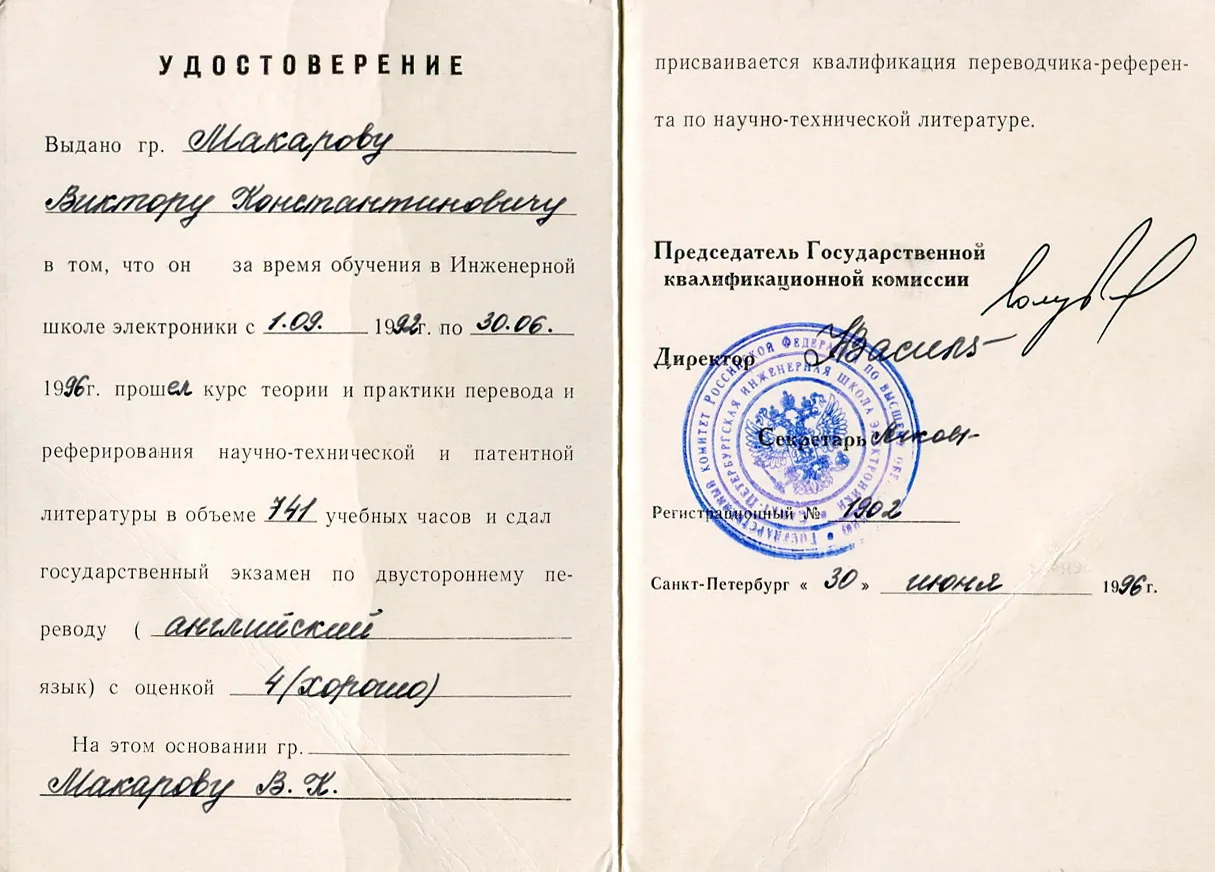 УДОСТОВЕРЕНИЕ
Выдано гр. Макарову
Виктору Константиновичу
в том, что он за время обучения в Инженерной
школе электроники с 1.09. 1992г. по 30.06.
1996г. прошел курс теории и практики перевода и
реферирования научно-технической и патентной
литературы в объеме 741 учебных часов и сдал
государственный экзамен по двустороннему пе-
реводу ( английский
язык) с оценкой 4 (хорошо)
На этом основании гр.
Макарову В. К.
присваивается квалификация переводчика-референ-
та по научно-технической литературе.
Председатель Государственной
квалификационной комиссии
Директор
Секретарь
Регистрационный № 1902
Санкт-Петербург « 30 » июня 1996г.
ГОСУДАРСТВЕННЫЙ КОМИТЕТ РОССИЙСКОЙ ФЕДЕРАЦИИ ПО ВЫСШЕМУ
С.-ПЕТЕРБУРГСКАЯ ИНЖЕНЕРНАЯ ШКОЛА ЭЛЕКТРОНИКИ